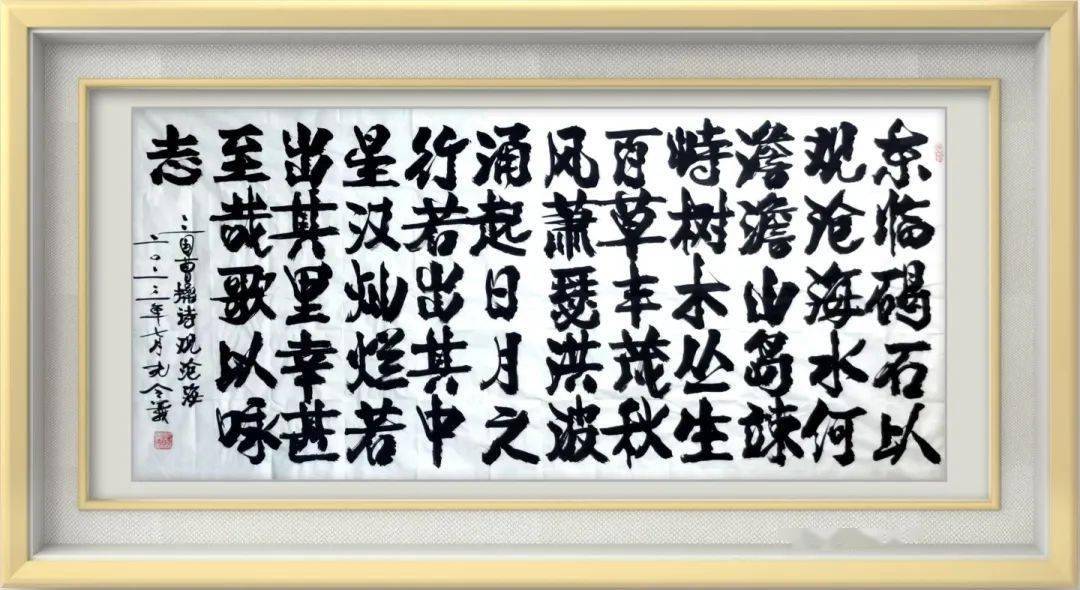 东临碣石以
观沧海水何
澹澹山岛竦
峙树木丛生
百草丰茂秋
风萧瑟洪波
涌起日月之
行若出其中
星汉灿烂若
出其里幸甚
至哉歌以咏
志
三国曹操诗观沧海
二〇二三年七月